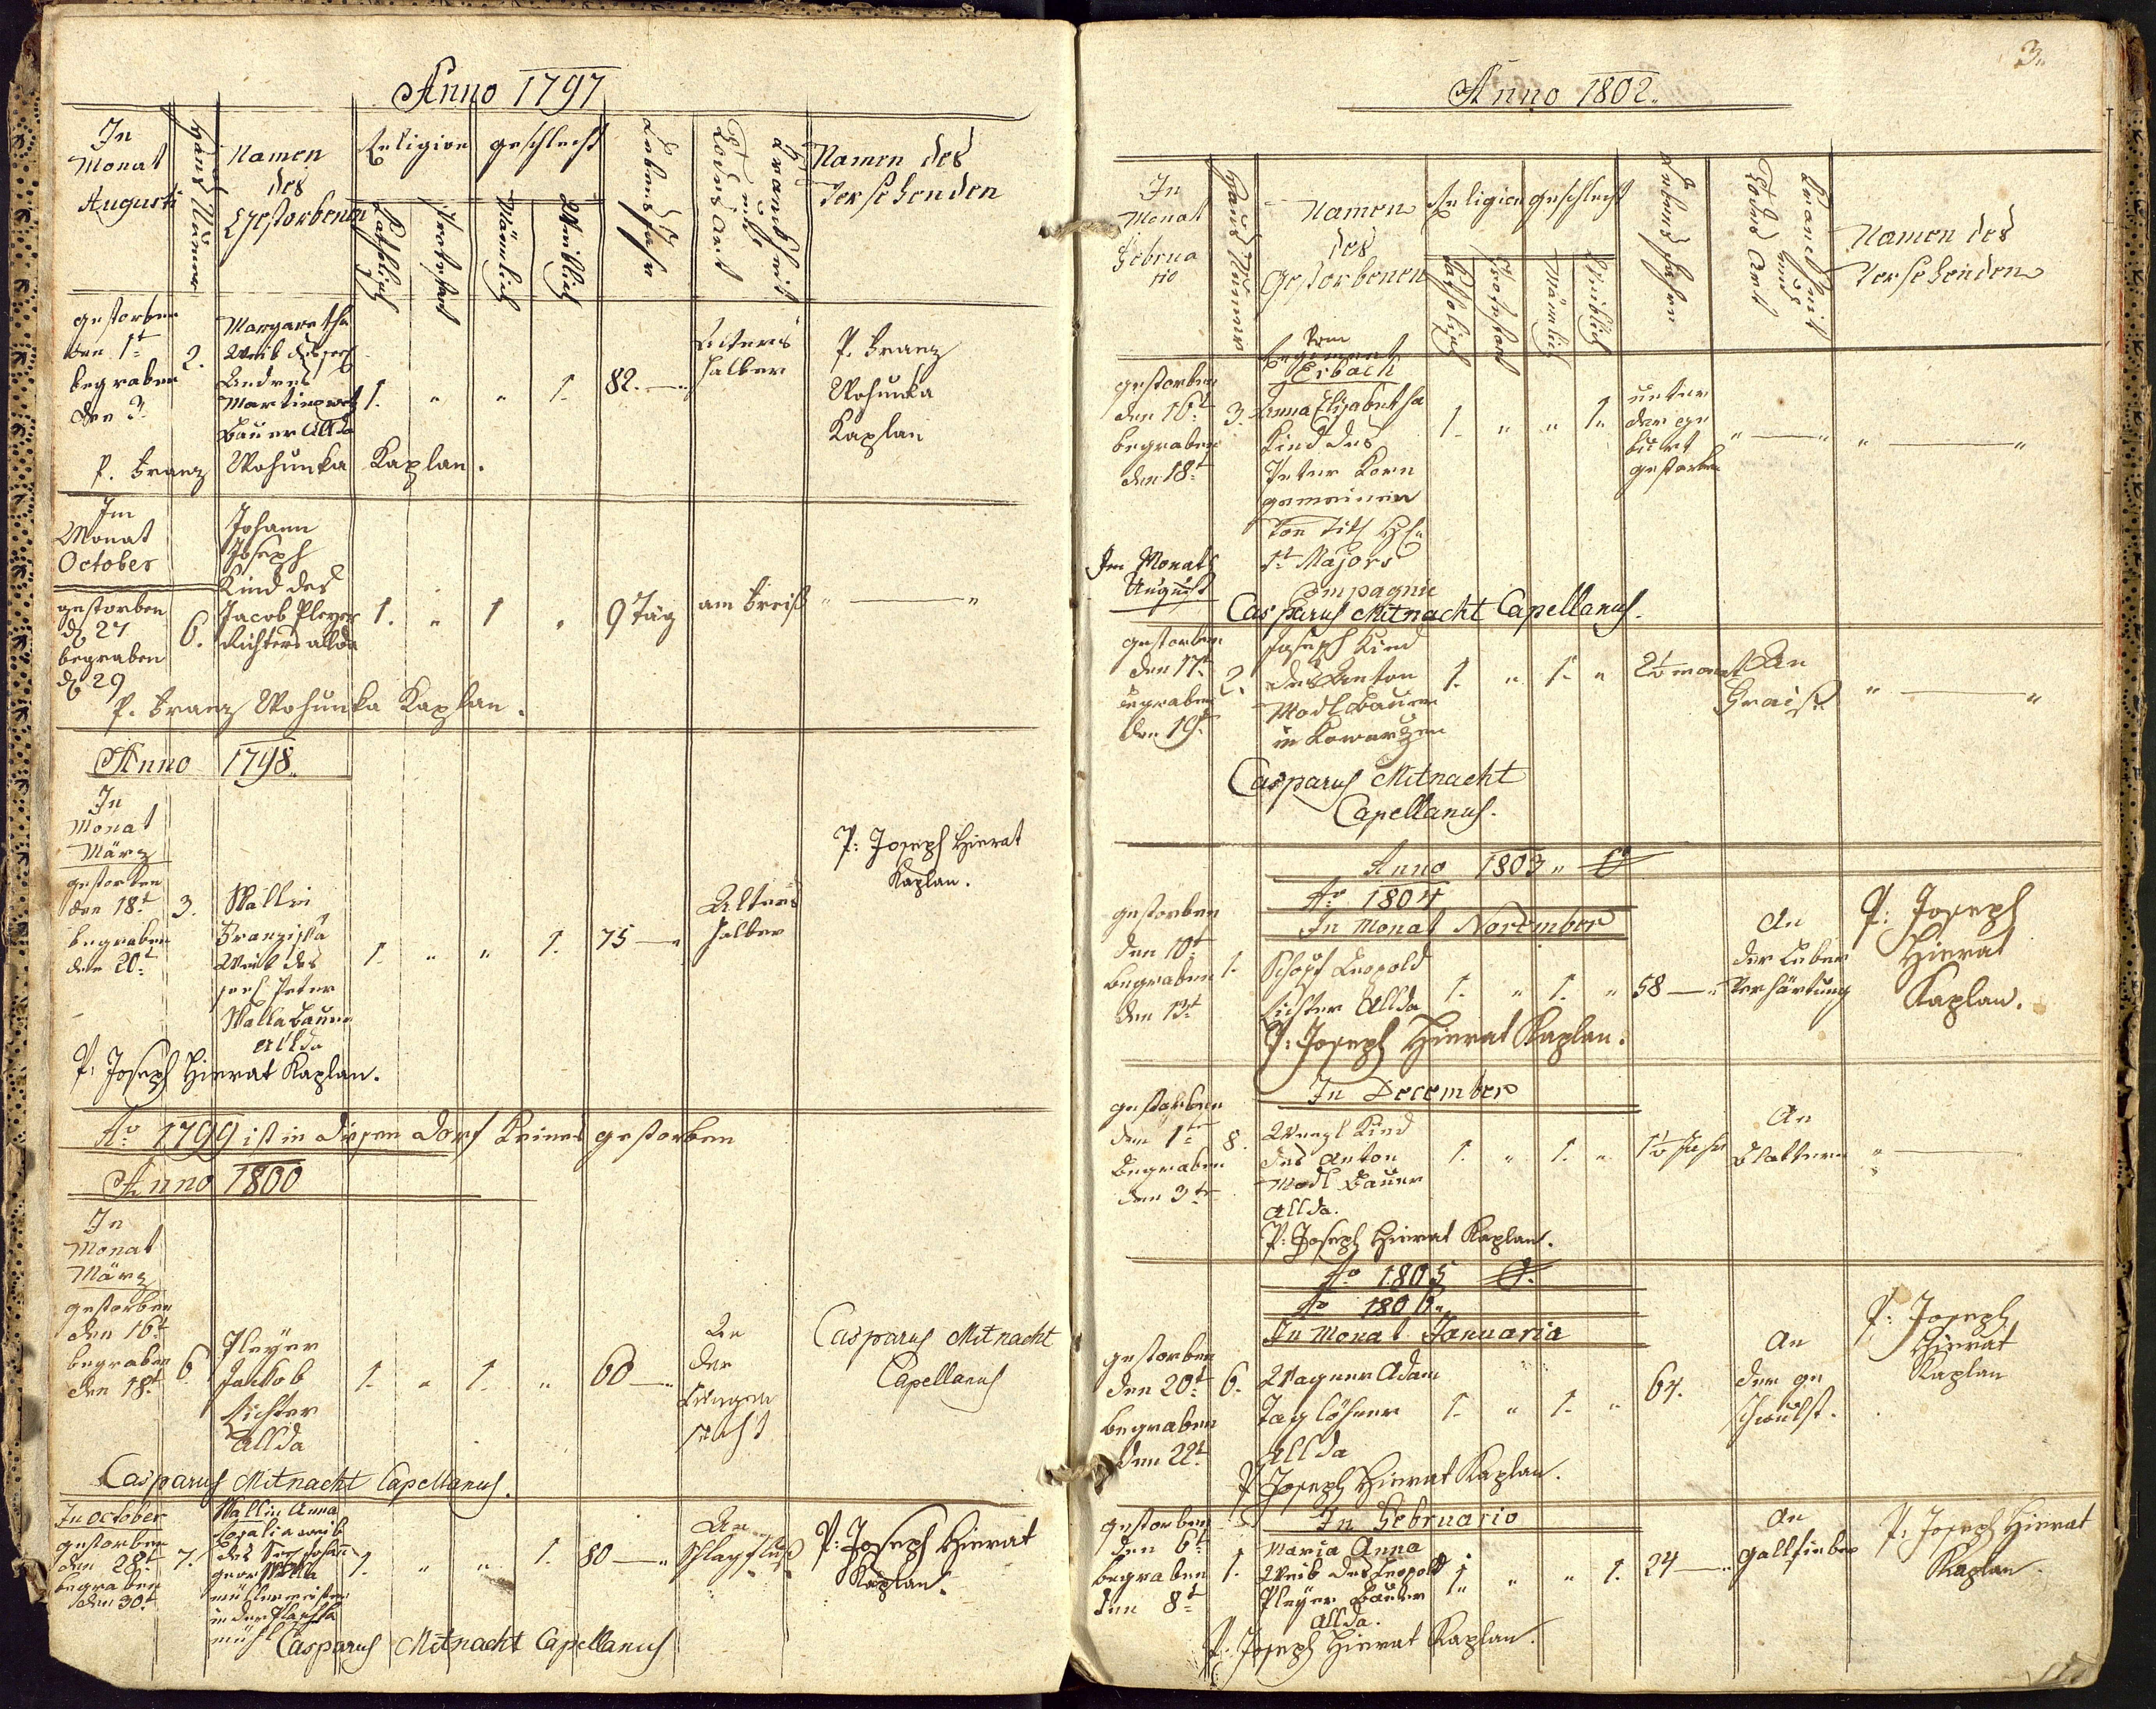 Anno 1797
In Monat Augusti
Haus Numer
Namen des Gestorbenen
Religion
Katholisch
Protestant
geschlecht
Mänlich
Weiblich
Lebens Jahr
Krankheit und Todes Art
Namen des Versehenden
gestorben
den 1t
begraben
den 3.
2.
Margaretha
Weib des
Andreas
Bauer Allda
1. " " 1. 82.
Alters
halber
P. Franz
Wohunka
Kaplan
P. Franz Wohunka Kaplan.
Im
Monat
October
gestorben
d 27
begraben
d 29
6.
Johann
Joseph
Kind des
Jacob Pleyer
Richters allda
1. " 1 " 9 Täg
am Freiß
" "
P. Franz Wohunka Kaplan.
Anno 1798.
In
Monat
März
gestorben
den 18t
begraben
den 20t
3.
Wallin
Franziska
Weib des
Peter
Walla Bauer
Allda
1. " " 1. 75
Alters
halber
P: Joseph Hierat
Kaplan.
P: Joseph Hierat Kaplan.
Ao 1799 ist in diesen Dorf Keines gestorben
Anno 1800
In
Monat
März
gestorben
den 16t
begraben
den 18t
6.
Pleÿer
Jakob
Richter
Allda
1. " 1. " 60
An
der
Lungen
sucht
Casparus Mitnacht
Capellanus
Casparus Mitnacht Capellanus.
In October
gestorben
den 28t
begraben
den 30t
7.
Wallin Anna
Rosalia weib
des
Georg Walla
müllermeister
in der
mühl
1. " " 1. 80
An
Schlagfluß
P: Joseph Hierat
Kaplan.
Casparus Mitnacht Capellanus
3.
Anno 1802.
In
Monat
Februa
rio
Haus Numer
Namen
des
Gestorbenen
Religion
Katholisch
Protestant
geschlecht
Mänlich
Weiblich
Lebens Jahren
Krankheit und Todes Art
Namen des
Versehenden
gestorben
den 16t
begraben
den 18t
3.
Vom
Regiment
Erbach
Anna Elisabetha
Kind des
Peter Korn
gemeinen
von
1t Majors
Compagnie
1. " " 1.
unter
der ge
burt
gestorben
" " " "
Im Monath
August
Casparus Mitnacht Capellanus.
gestorben
den 17t
begraben
den 19t
2.
Joseph Kind
des Anton
Modl Bauern
in Kowarzen
1. " 1. " 2½ monat
An
Fraiß
" "
Casparus Mitnacht
Capellanus.
Anno 1803.
Ao 1804
In Monat November
gestorben
den 10t
begraben
den 13t
1.
Schopf Leopold
Richter Allda
1. " 1. " 58
An
der Leber
Verhärtung
P: Joseph
Hierat
Kaplan.
P: Joseph Hierat Kaplan.
In December
gestorben
den 1te
begraben
den 3te
8.
Wenzl Kind
des Anton
Modl Bauer
Allda.
1. " 1. " 1½ Jahr
An
Blattern
" "
P: Joseph Hierat Kaplan.
Ao 1805
Ao 1806.
In Monat Januaria
gestorben
den 20t
begraben
den 22t
6.
Wagner Adam
Taglöhner
Allda
1. " 1. " 64.
An
der ge
schwulst.
P: Joseph
Hierat
Kaplan
P Joseph Hierat Kaplan.
In Februario
gestorben
den 6t
begraben
den 8t
1.
Maria Anna
Weib des Leopold
Pleÿer Bauer
Allda.
1. " " 1. 24
An
Gallfieber
P: Joseph Hierat
Kaplan.
P: Joseph Hierat Kaplan.